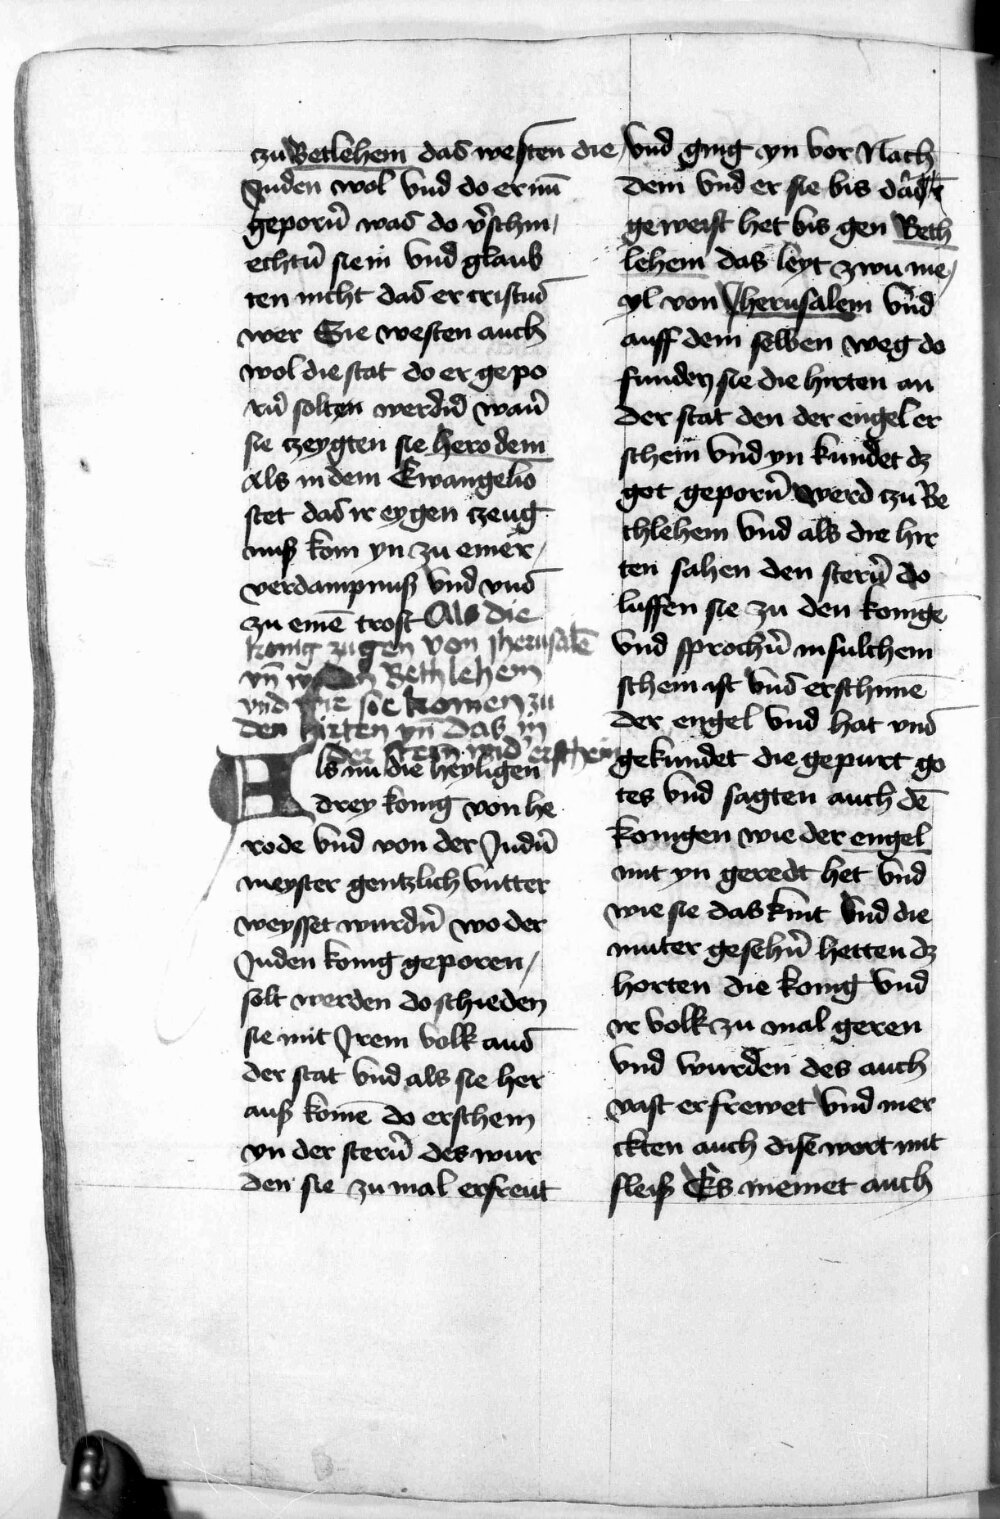 czu Betlehem das westen die
Juden wol vnd do er nu̅
geporn̅ was do v̾schm/
echtn̅ sie in vnd glaub
ten nicht das er cristus
wer Sie westen auch
wol die stat do er gepo
rn̅ solten werdn̅ wan̅
sie czeygten sie herodem
Als in dem Ewangelio
stet das ir eygen czeug
nuß kom yn zu einer/
verdampnuß vnd vns
zu eine̅ trost Als die
konig zugen von Jherusale̅
vn̅ Bethlehem
vnd wie sie komen zu
den hirten vn̅ das in
der stern wid̾ erschein
Als nu die heyligen
drey konig von he
rode vnd von der Judn̅
meyster gentzlich vntter
weysset wurdn̅ wo der
Juden konig geporen/
solt werden do schieden
sie mit Jrem volk aus
der stat vnd als sie her
auß kome̅ do erschein
yn der stern̅ des wur
den sie zu mal erfreut
vnd ging yn vor Nach
dem vnd er sie bis
geweist het bis gen Beth
lehem das leyt zwu me/
yl von Jherusalem vnd
auff dem selben weg do
funden sie die hirten an
der stat den der engel er
schein vnd yn kundet dz
got geporn̅ werd czu Be
thlehem vnd als die hir
ten sahen den stern̅ do
luffen sie zu den konige̅
vnd sprochn̅ in sulchem
schein ist vns erschine̅
der engel vnd hat vns
gekundet die gepurt go
tes vnd sagten auch de̅
konigen wie der engel
mit yn geredt het vnd
wie sie das kint vnd die
muter gesehn̅ hetten dz
horten die konig vnd
ir volk zu mal geren
vnd wurden des auch
vast erfrewet vnd mer
ckten auch dise wort mit
fleiß Es meinet auch